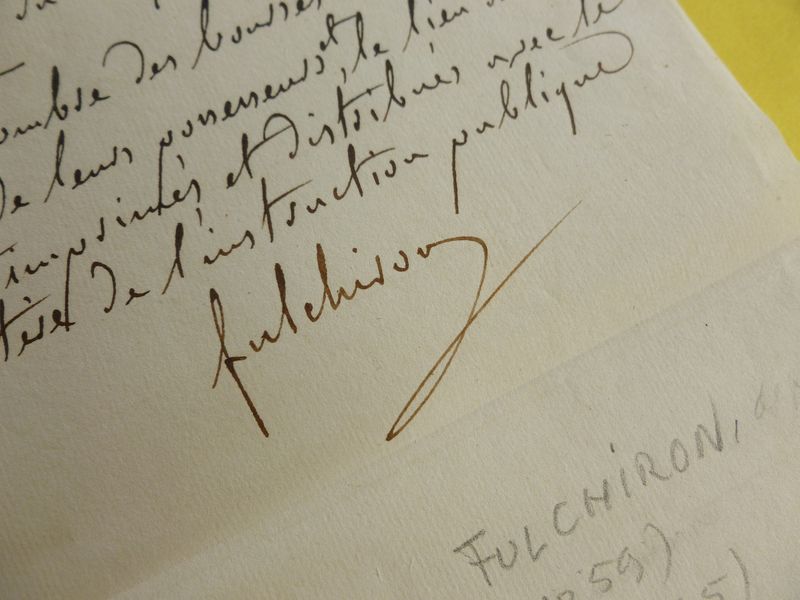 ombre des bourses
de leurs possesseurs, et le lieu
imprimés et distribués avec le
tère de l'instruction publique
fulchiron
FULCHIRON,
59)
5)